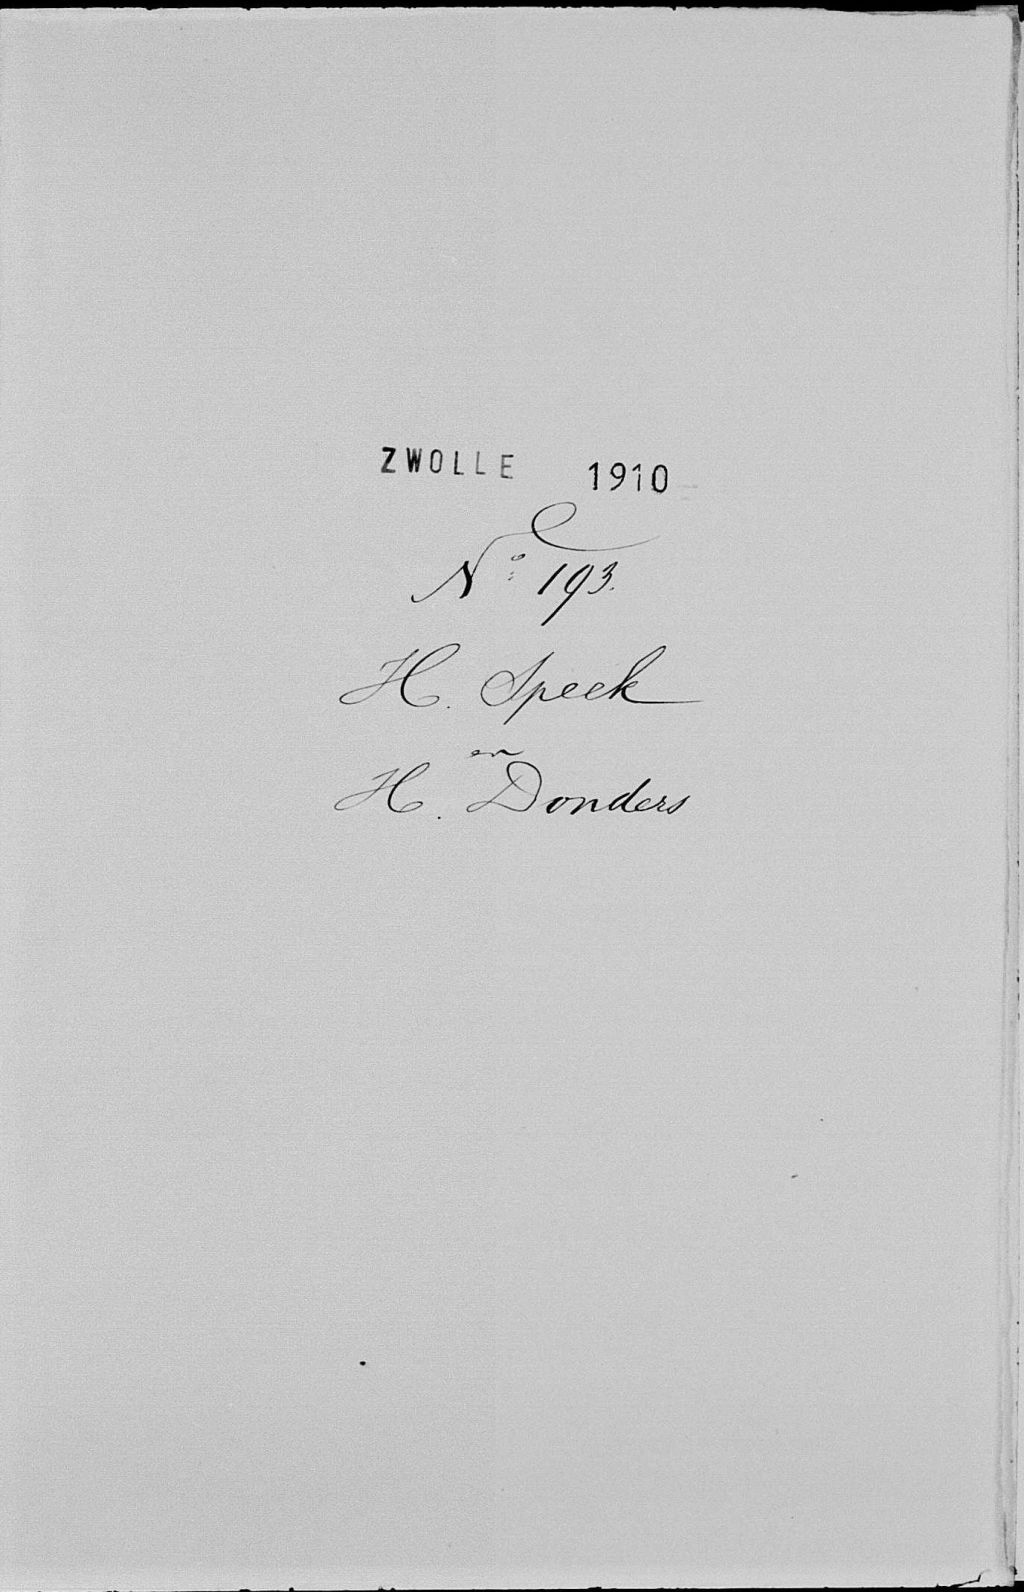 ZWOLLE 1910
No 193.
H. Speek
en
H. Donders